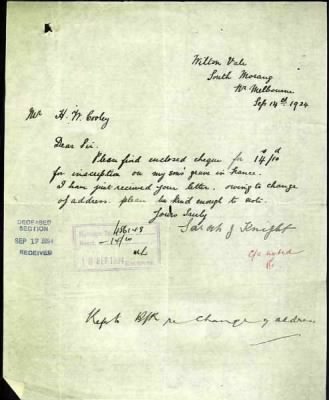 Wilton Vale
South Morang
Nr. Melbourne
Sep 14th 1924
Mr H. W. Cooley
Dear Sir.
Please find enclosed cheque for 14/10
for inscription on my son's grave in France.
I have just received your letter. owing to change
of address. please be kind enough to note.
Yours truly
Sarah J Knight
DECEASED
SECTION
SEP 17 1924
RECEIVED
14/10
SEP 1924
C/a noted
Kept B/R re change of address